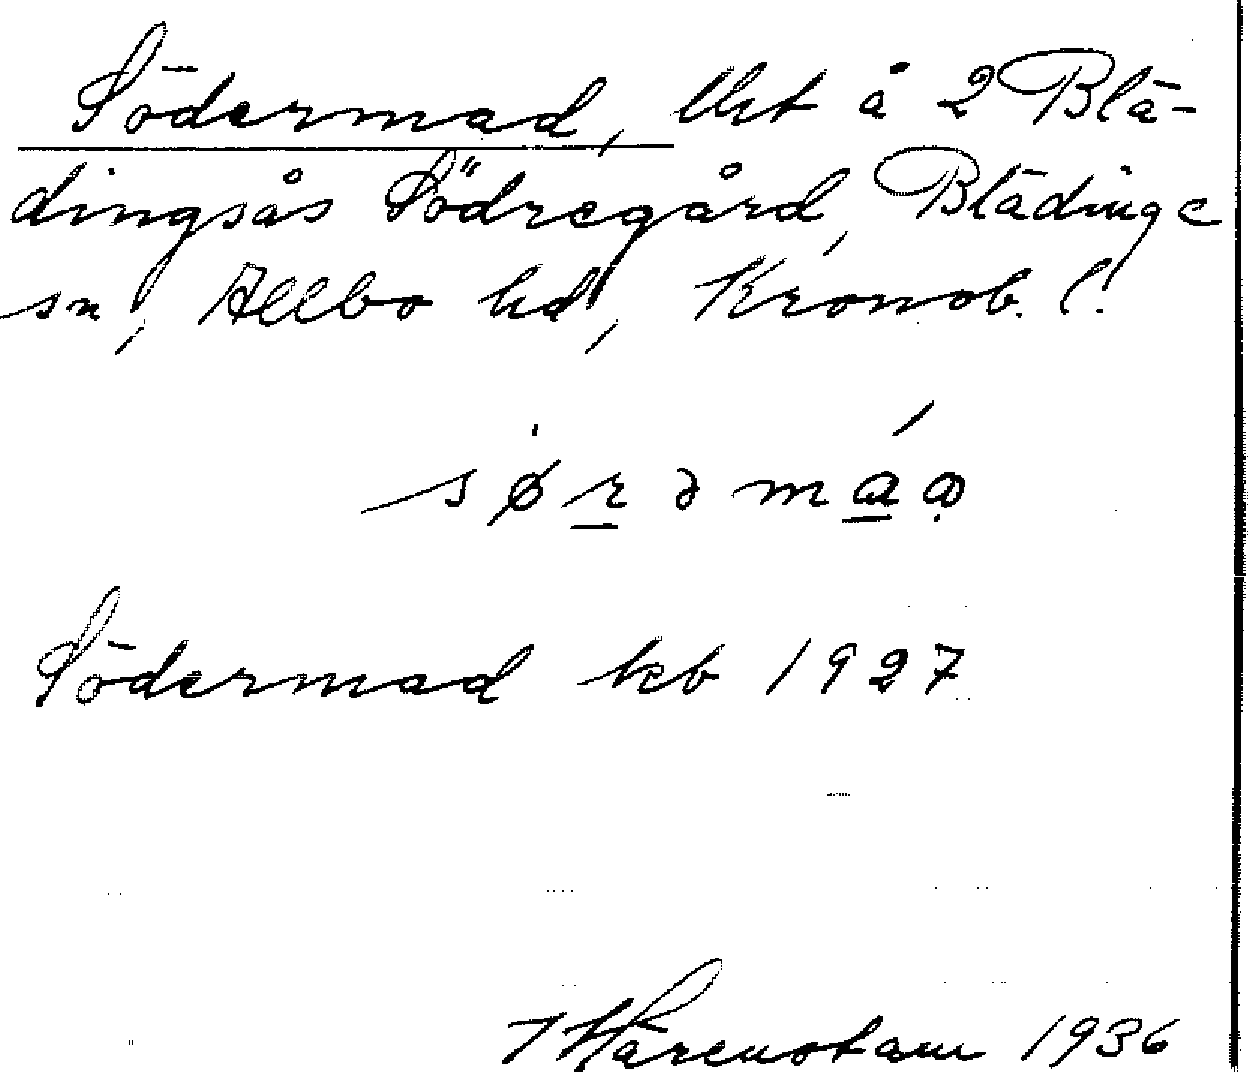 Södermad, lht å 2 Blä-
dingsås Södregård, Blädinge
sn, Allbo hd, Kronob. l.
Södermad kb 1927
Härenstam 1936